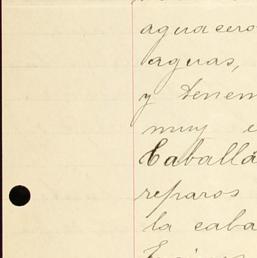 aguacero
aguas,
y tenem
muy e
Caballa
reparos
la caba